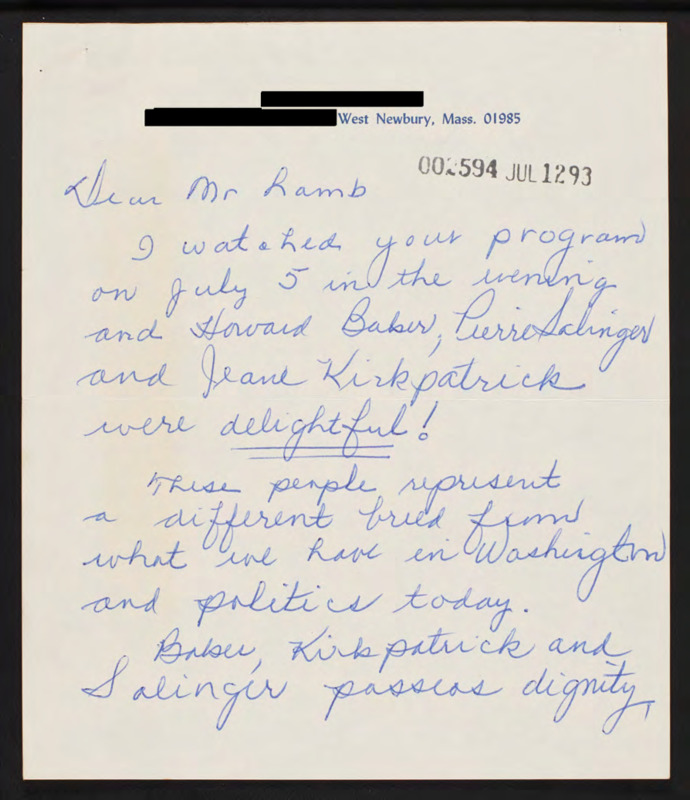 West Newbury, Mass. 01985
002594 JUL 12 93
Dear Mr Lamb
I watched your program
on July 5 in the evening
and Howard Baker, Pierre Salinger
and Jeane Kirkpatrick
were delightful!
These people represent
a different breed from
what we have in Washington
and politics today.
Baker, Kirkpatrick and
Salinger possess dignity,